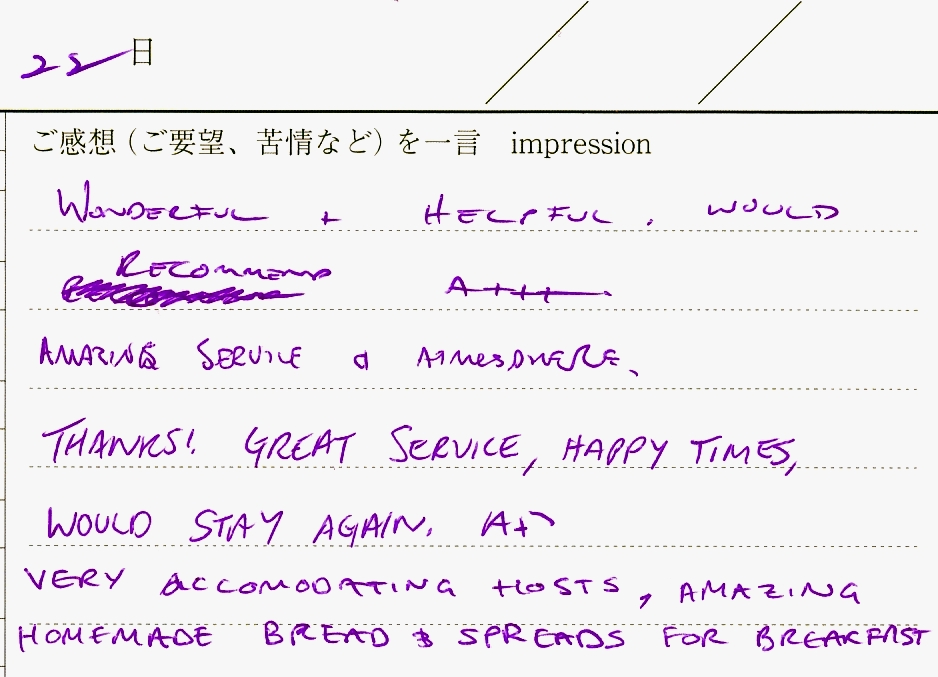 22日
ご感想（ご要望、苦情など）を一言 impression
WONDERFUL + HELPFUL. WOULD
RECOMMEND A++++
AMAZING SERVICE & ATMOSPHERE.
THANKS! GREAT SERVICE, HAPPY TIMES,
WOULD STAY AGAIN. A+
VERY ACCOMODATING HOSTS, AMAZING
HOMEMADE BREAD & SPREADS FOR BREAKFAST